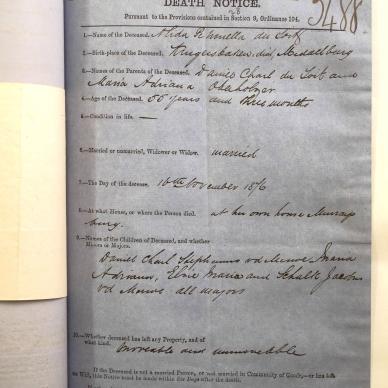 DEATH NOTICE.
Pursuant to the Provisions contained in Section 9, Ordinance 104.
28
5488
1.—Name of the Deceased. Alida Petronella du Toit
2.—Birth-place of the Deceased. dist, Middelburg
3.—Names of the Parents of the Deceased. Daniel Charl du Toit and
Maria Adriana Oberholzer
4.—Age of the Deceased. 55 years and three months
5.—Condition in life. —
6.—Married or unmarried, Widower or Widow. married
7.—The Day of the decease. 10th November 1876
8.—At what House, or where the Person died. at her own house Murrays
burg.
9.—Names of the Children of Deceased, and whether
Minors or Majors.
Daniel Charl Stephanus vd Merwe, Maria
Adriana, Elsie Maria and Schalk Jacobus
vd Merwe all majors
10.—Whether deceased has left any Property, and of
what kind.
Moveable and immoveable
If the Deceased is not a married Person, or not married in Community of Goods,—or has left
no Will, this Notice must be made within Six Days after the death.